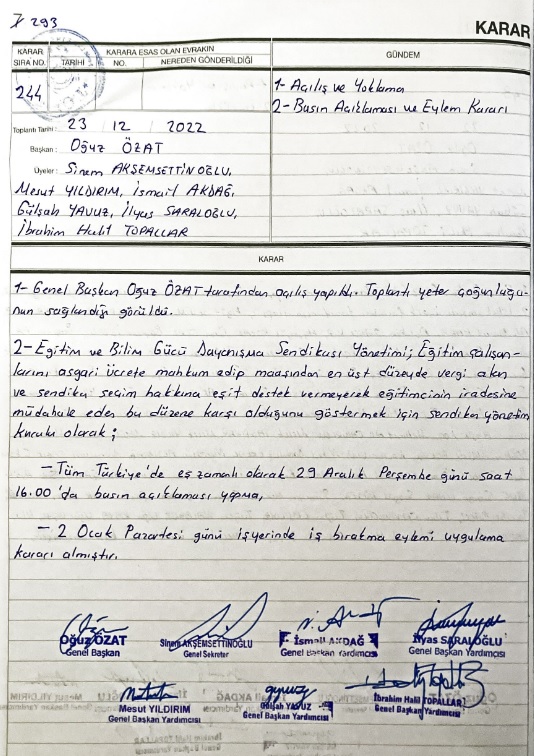 293
KARAR
KARAR SIRA NO.
KARARA ESAS OLAN EVRAKIN
TARİHİ NO. NEREDEN GÖNDERİLDİĞİ
GÜNDEM
244
1- Açılış ve Yoklama
2- Basın Açıklaması ve Eylem Kararı
Toplantı Tarihi: 23 12 2022
Başkan: Oğuz ÖZAT
Üyeler: Sinem AKŞEMSETTİNOĞLU,
Mesut YILDIRIM, İsmail AKDAĞ,
Gülşah YAVUZ, İlyas SARALOĞLU,
İbrahim Halil TOPALLAR
KARAR
1- Genel Başkan Oğuz ÖZAT tarafından açılış yapıldı. Toplantı yeter çoğunluğu-
nun sağlandığı görüldü.
2- Eğitim ve Bilim Gücü Dayanışma Sendikası Yönetimi; Eğitim çalışan-
larını asgari ücrete mahkum edip maaşından en üst düzeyde vergi alan
ve sendika seçim hakkına eşit destek vermeyerek eğitimcinin iradesine
müdahale eden bu düzene karşı olduğunu göstermek için sendika yönetim
kurulu olarak;
- Tüm Türkiye'de eş zamanlı olarak 29 Aralık Perşembe günü saat
16.00'da basın açıklaması yapma,
- 2 Ocak Pazartesi günü işyerinde iş bırakma eylemi uygulama
kararı almıştır.
Oğuz ÖZAT
Genel Başkan
Sinem AKŞEMSETTİNOĞLU
Genel Sekreter
İsmail AKDAĞ
Genel Başkan Yardımcısı
İlyas SARALOĞLU
Genel Başkan Yardımcısı
Mesut YILDIRIM
Genel Başkan Yardımcısı
Gülşah YAVUZ
Genel Başkan Yardımcısı
İbrahim Halil TOPALLAR
Genel Başkan Yardımcısı